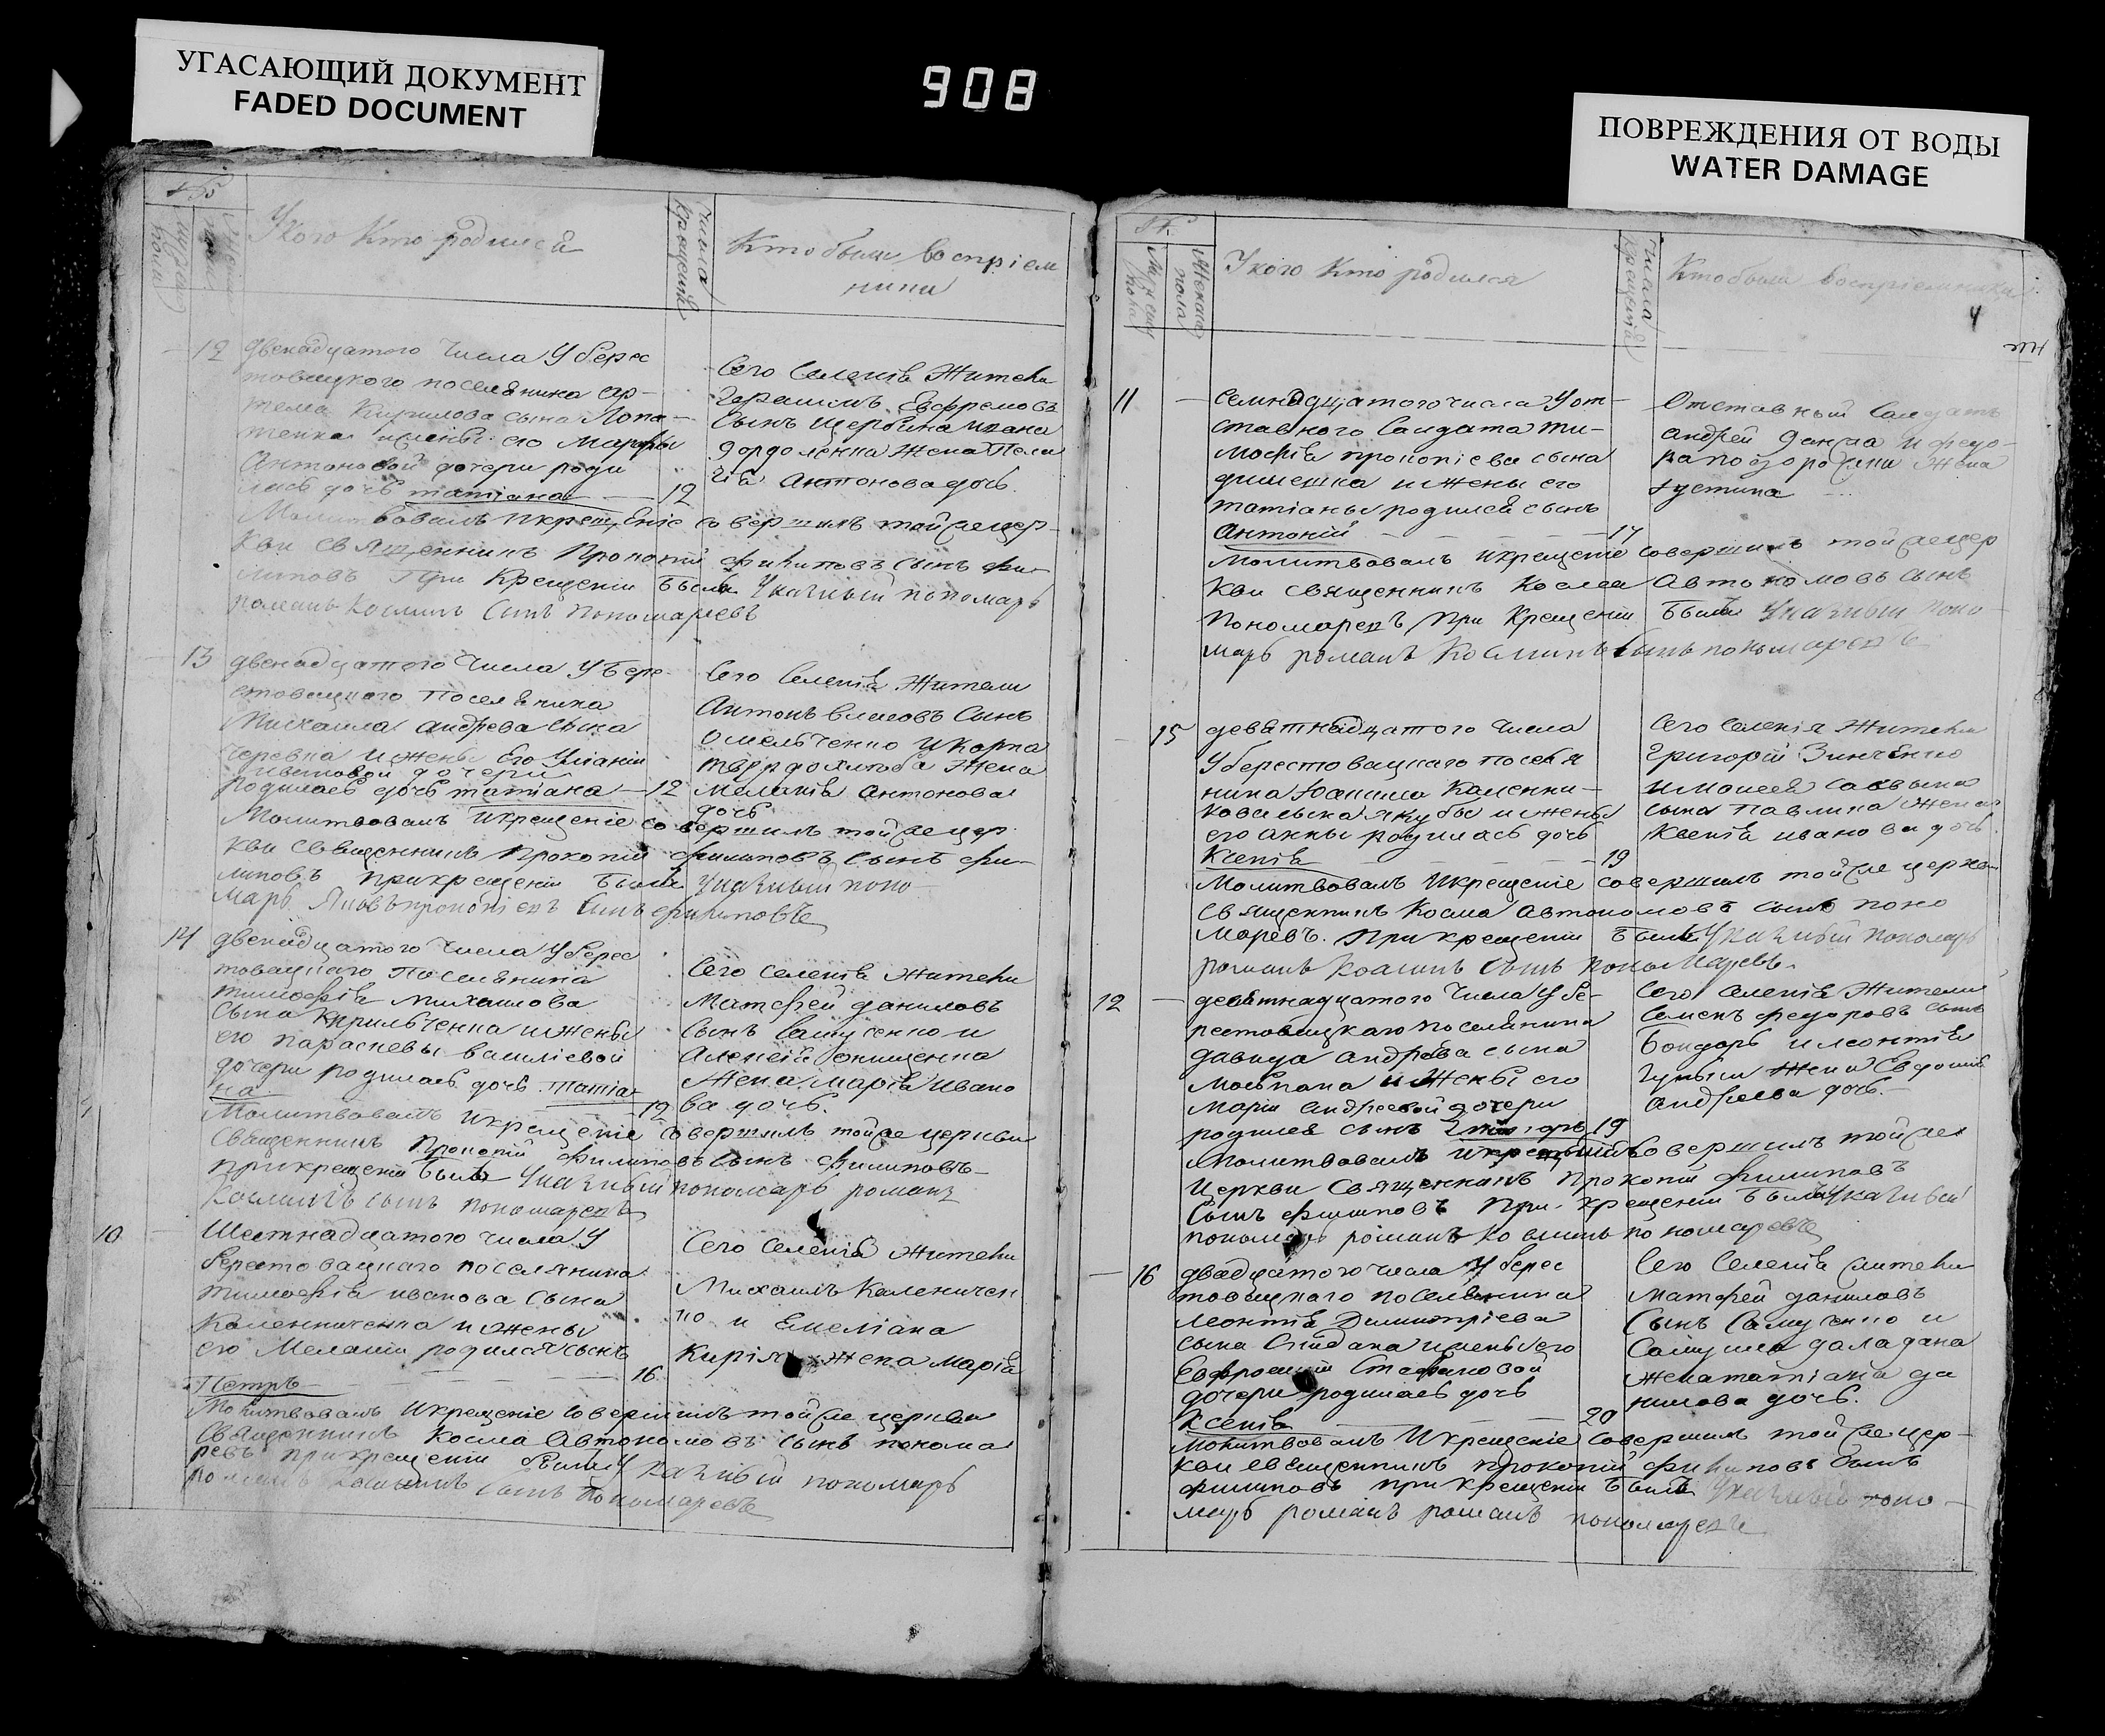 УГАСАЮЩИЙ ДОКУМЕНТ
FADED DOCUMENT
908
ПОВРЕЖДЕНИЯ ОТ ВОДЫ
WATER DAMAGE
У кого кто родился
числа крещений
Кто были воспріем
ники
12 двенадцатого числа У берес
товацкого поселянина ар-
тема Кирилова сына Лопа-
тенка и жены его Марфы
Антоновой дочери роди
лась дочь татіана — 12
Сего Селенія Жители
Герасимъ Евфремовъ
Сынъ Щербина Ивана
жена Пела
гія Антонова дочь
Молитвовалъ и крещеніе совершилъ той же цер-
кви священникъ Прокопій филиповъ сынъ фи-
липовъ При Крещеніи былъ Указный пономарь
романъ Косминъ Сынъ Пономаревъ
13 двенадцатого числа У бере-
стовацкого поселянина
Михаила андрева сына
Черевка и жены Его Уліаніи
дочери
родилась дочь татіана — 12
Сего Селенія Жители
Антонъ Сынъ
Омельченко и Карпа
Жена
Меланія Антонова
дочь
Молитвовалъ и крещеніе совершилъ той же цер
кви священникъ Прокопій филиповъ сынъ фи-
липовъ при крещеніи былъ указный поно-
марь Яковъ прокопіевъ сынъ филиповъ
14 двенадцатого числа У берес
товацкаго Поселянина
тимофея Михаилова
сына Кирильченка и жены
его параскевы василіевой
дочери родилась дочь татіа-
на — 12
Сего селенія жители
Матфей даниловъ
Сынъ Самусенко и
Алексея Онищенка
Жена Марія Ивано
ва дочь.
Молитвовалъ и крещеніе совершилъ той же церкви
Священникъ Прокопій филиповъ сынъ филиповъ-
при крещеніи былъ Указный пономарь романъ
Косминъ сынъ пономаревъ
10 Шестнадцатого числа У
берестовацкаго поселянина
тимофея иванова сына
Калениченка и жены
его Меланіи родился сынъ
Петръ — 16
Сего селенія жители
Михаилъ Каленичен
ко и Емеліана
жена Марія
Молитвовалъ и крещеніе совершилъ той же церкви
Священникъ Косма Автономовъ сынъ понома
ревъ при крещеніи былъ Указный пономарь
романъ Косминъ сынъ Пономаревъ
Мужеска пола
Женска пола
У кого кто родился
числа крещений
Кто были воспріемники
4
11 Семнадцатого числа У от-
ставного Салдата ти-
мофея прокопіева сына
и жены его
татіаны родился сынъ
Антоній — 17
Отставный Салдатъ
андрей и федо-
ра жена
Молитвовалъ и крещеніе совершилъ той же цер
кви священникъ Косма Автономовъ сынъ
Пономаревъ При Крещеніи былъ Указный поно-
марь романъ Косминъ сынъ пономаревъ
15 девятнадцатого числа
У берестовацкаго поселя
нина
сына и жены
его анны родилась дочь
Ксенія — 19
Сего Селенія Жители
Григорій Зинченко
и Моисея Саввина
сына Павлика жена
Ксенія иванова дочь
Молитвовалъ и крещеніе совершилъ той же церкви
священникъ Косма автономовъ сынъ поно
маревъ. При крещеніи былъ Указный пономарь
романъ Косминъ сынъ пономаревъ.
12 девятнадцатого числа У бе-
рестовацкаго поселянина
давида андрева сына
и жены его
Маріи андреевой дочери
родился сынъ 19
Сего Селенія Жители
Семенъ федоровъ сынъ
Бондарь и леонтія
жена Евдокія
андреева дочь.
Молитвовалъ и крещеніе совершилъ той же
Церкви Священникъ Прокопій филиповъ
Сынъ филиповъ При крещеніи былъ указный
пономарь романъ Косминъ пономаревъ
16 двадцатого числа У берес
товацкаго поселянина
леонтія Димитріева
сына и жены его
Евфросиніи Стефановой
дочери родилась дочь
Ксенія — 20
Сего Селенія жители
матфей даниловъ
Сынъ Самусенко и
Самуила даладана
жена татіана да
нилова дочь.
Молитвовалъ и крещеніе совершилъ той же цер-
кви священникъ прокопій филиповъ сынъ
филиповъ при крещеніи былъ Указный поно-
марь романъ романъ пономаревъ